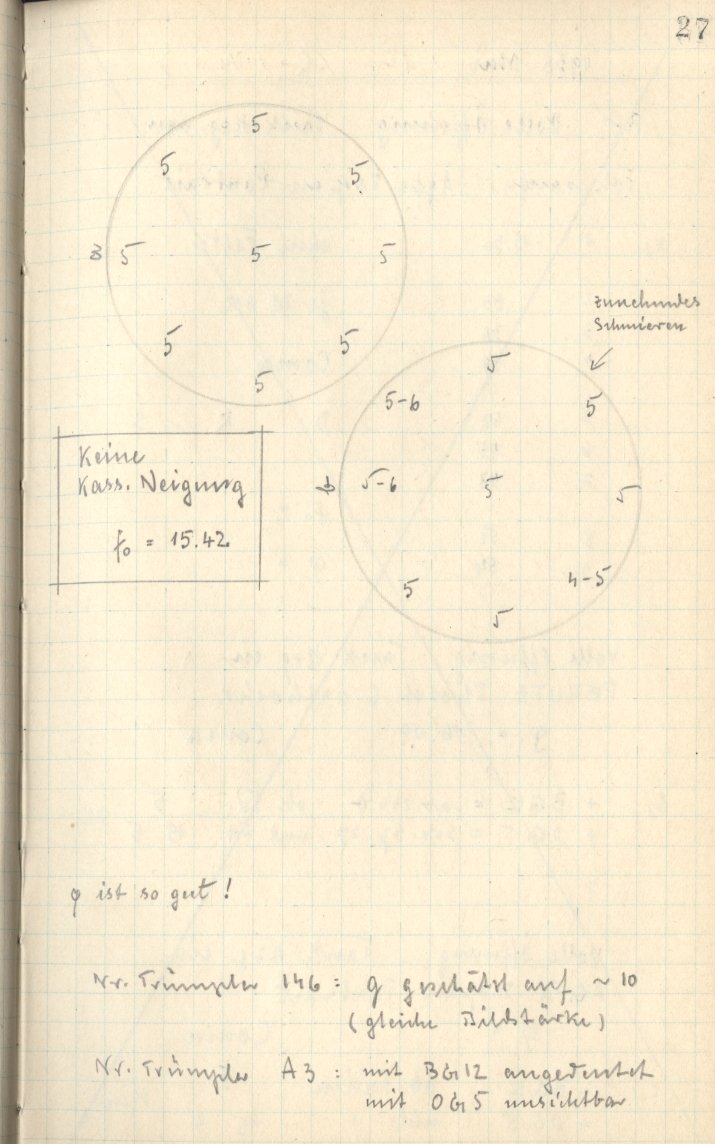 27
5
5 5
8 5 5 5
5 5
5
zunehmendes
Schmieren
5
5-6 5
5-6 5 5
5 4-5
5
Keine
Kass. Neigung
f₀ = 15.42
φ ist so gut!
Nr. Trümpler 146 = φ geschätzt auf ~ 10
(gleiche Bildstärke)
Nr. Trümpler A3 : mit BG12 angedeutet
mit OG5 unsichtbar